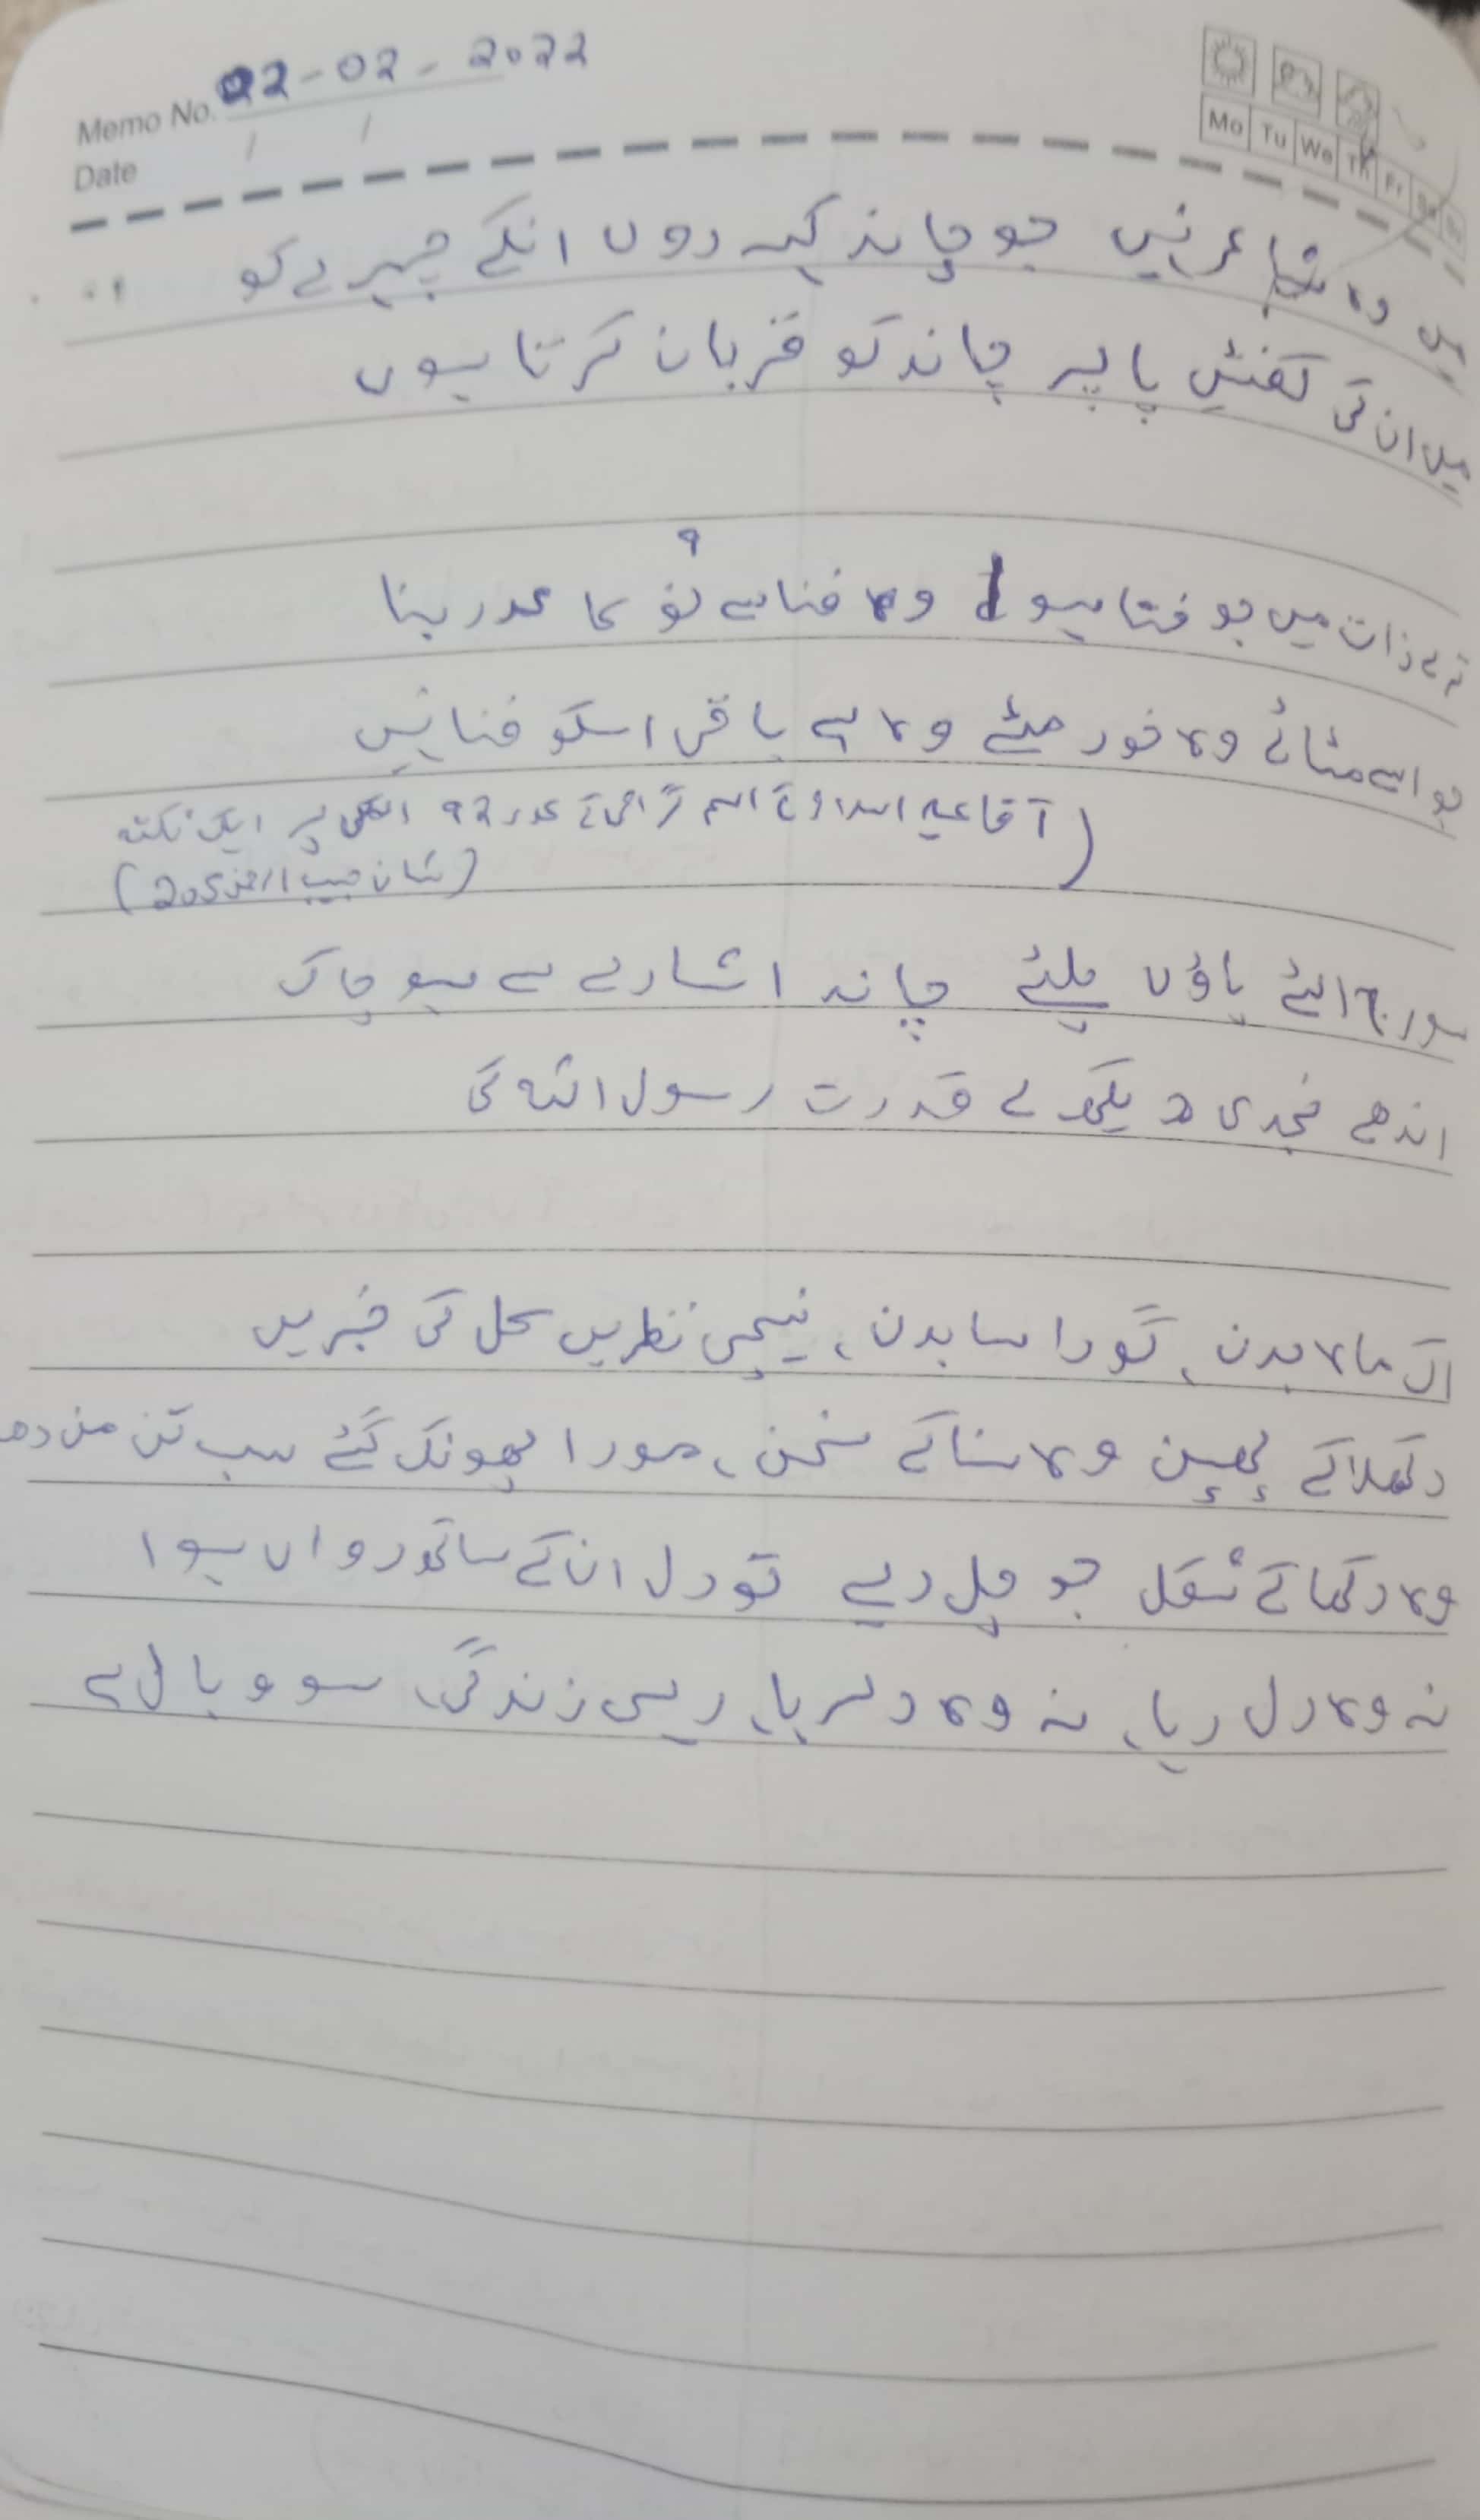 Memo No. 02-02-2022
Date / /
Mo Tu We Th Fr Sa Su
میں وہ شاعر نہیں جو چاند کہہ دوں انکے چہرے کو
میں ان کی کفشِ پا پر چاند کو قربان کرتا ہوں
تیرے ذات میں جو فنا ہوا وہ فنا سے نو کا عدد بنا
۹
جو اسے مٹائے وہ خود مٹے وہ ہے باقی اسکو فنا نہیں
(آقا علیہ السلام کے اسم گرامی کے عدد 92 پر ایک نکتہ
(شان حبیب الرحمن 205)
سورج الٹے پاؤں پلٹے چاند اشارے سے ہو چاک
اندھے نجدی دیکھ لے قدرت رسول اللہ کی
اک ماہ بدن، گورا سا بدن، نیچی نظریں کل کی خبریں
دکھلا کے پھبن وہ سنا کے سخن، مورا پھونک گئے سب تن من دھ
وہ دکھا کے شکل جو چل دیے تو دل ان کے ساتھ رواں ہوا
نہ وہ دل رہا، نہ وہ دلربا، رہی زندگی، سو وبال ہے